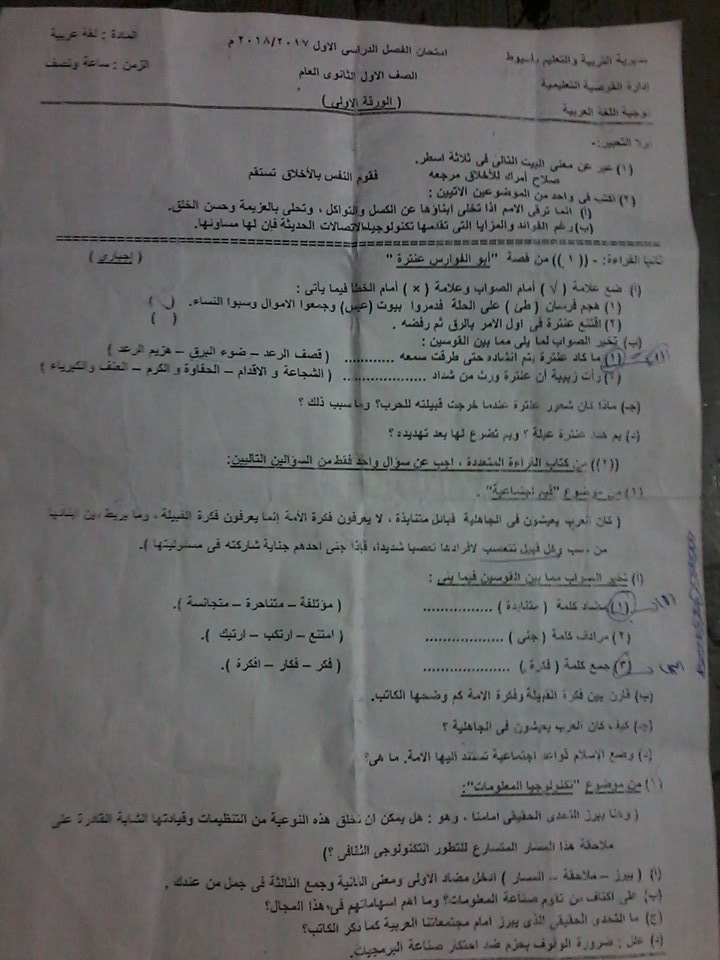 مديرية التربية والتعليم بأسيوط
امتحان الفصل الدراسى الاول ٢٠١٨/٢٠١٧ م
المادة : لغة عربية
ادارة القوصية التعليمية
الصف الاول الثانوى العام
الزمن : ساعة ونصف
توجية اللغة العربية
( الورقة الاولى )
اولا التعبير:-
(١) عبر عن معنى البيت التالى فى ثلاثة اسطر.
صلاح أمرك للأخلاق مرجعه فقوم النفس بالأخلاق تستقم
(٢) اكتب فى واحد من الموضوعين الاتيين :
(أ) انما ترقى الامم اذا تخلى ابناؤها عن الكسل والتواكل ، وتحلى بالعزيمة وحسن الخلق.
(ب) رغم الفوائد والمزايا التى تقدمها تكنولوجيا الاتصالات الحديثة فإن لها مساوئها.
ثانيا القراءة: - ((١)) من قصة "أبو الفوارس عنترة " ( إجبارى )
(أ) ضع علامة ( √ ) أمام الصواب وعلامة ( × ) أمام الخطأ فيما يأتى :
(١) هجم فرسان ( طئ ) على الحلة فدمروا بيوت (عبس) وجمعوا الاموال وسبوا النساء. ( )
(٢) اقتنع عنترة فى اول الامر بالرق ثم رفضه . ( )
(ب) تخير الصواب لما يلى مما بين القوسين :
(١) ما كاد عنترة يتم انشاده حتى طرقت سمعه ........... ( قصف الرعد – ضوء البرق – هزيم الرعد )
(٢) رأت زبيبة أن عنترة ورث من شداد ................. ( الشجاعة و الاقدام – الحفاوة و الكرم – العنف والكبرياء )
(جـ) ماذا كان شعور عنترة عندما خرجت قبيلته للحرب؟ وما سبب ذلك ؟
(د) بم هدد عنترة عبلة ؟ وبم تضرع لها بعد تهديده ؟
((٢)) من كتاب القراءة المتعددة ، اجب عن سؤال واحد فقط من السؤالين التاليين:
(١) من موضوع "قيم اجتماعية" .
( كان العرب يعيشون فى الجاهلية قبائل متنابذة ، لا يعرفون فكرة الأمة إنما يعرفون فكرة القبيلة ، وما يربط بين ابنائها
من نسب وكل قبيل تتعصب لافرادها تعصبا شديدا، فإذا جنى احدهم جناية شاركته فى مسئوليتها ).
(أ) تخير الصواب مما بين القوسين فيما يلى :
(١) مضاد كلمة ( متنابذة ) ................ ( مؤتلفة – متناحرة – متجانسة ).
(٢) مرادف كلمة ( جنى ) ................. ( امتنع – ارتكب – ارتبك ).
(٣) جمع كلمة ( فكرة ) .................. ( فكر – فكار – افكرة ).
(ب) قارن بين فكرة القبيلة وفكرة الامة كم وضحها الكاتب.
(جـ) كيف كان العرب يعيشون فى الجاهلية ؟
(د) وضع الإسلام قواعد اجتماعية تستند اليها الامة. ما هى؟
(٢) من موضوع "تكنولوجيا المعلومات":
( وهنا يبرز التحدى الحقيقى امامنا ، وهو : هل يمكن ان نخلق هذه النوعية من التنظيمات وقيادتها الشابة القادرة على
ملاحقة هذا المسار المتسارع للتطور التكنولوجى الثقافى ؟)
(أ) ( يبرز – ملاحقة – المسار ) ادخل مضاد الاولى ومعنى الثانية وجمع الثالثة فى جمل من عندك .
(ب) على اكتاف من تقوم صناعة المعلومات؟ وما اهم اسهاماتهم فى هذا المجال؟
(ج) ما التحدى الحقيقى الذى يبرز امام مجتمعاتنا العربية كما ذكر الكاتب؟
(د) علل : ضرورة الوقوف بحزم ضد احتكار صناعة البرمجيات.